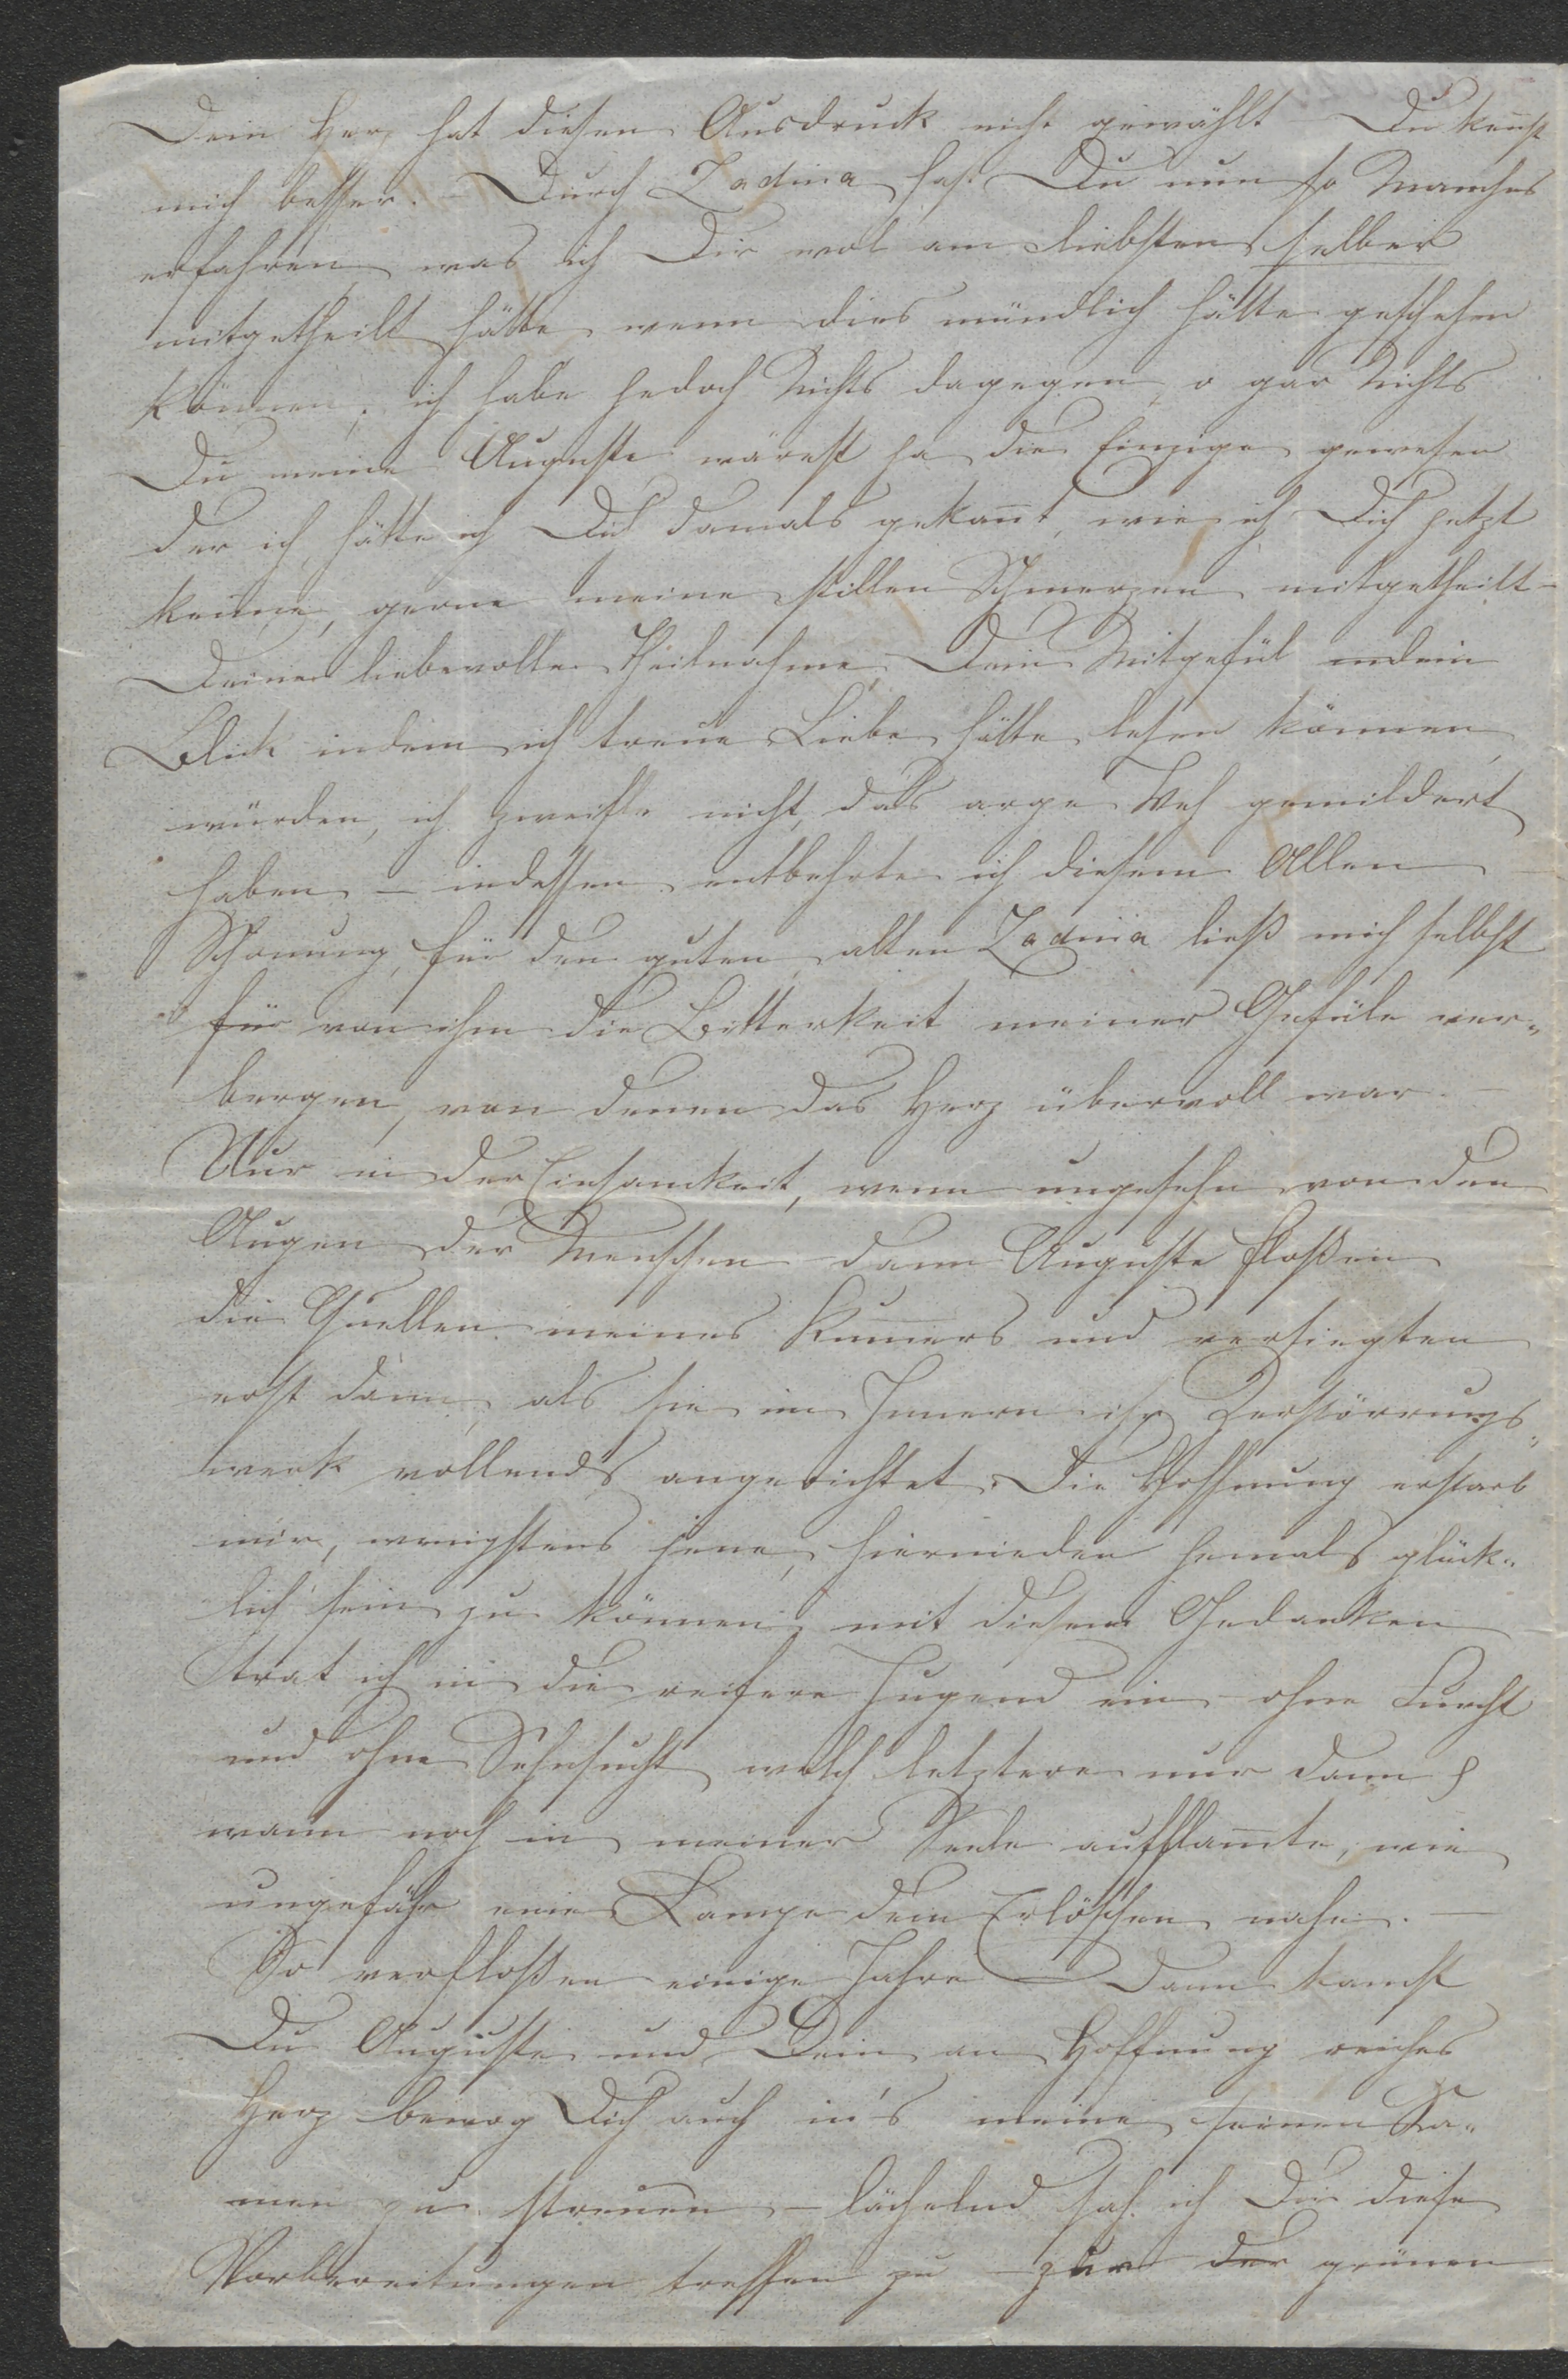 Dein Herz hat diesen Ausdruck nicht gewählt – Du kenst
mich besser. – Durch Zadina hast Du nun so Manches
erfahren, was ich Dir wol am liebsten selber
mitgetheilt hätte, wenn dies mündlich hätte geschehen
können; ich habe jedoch Nichts dagegen, o gar Nichts
Du meine Auguste wärest ja die Einzige gewesen
der ich, hätte ich Dich damals gekannt, wie ich Dich jetzt
kenne, gerne meine stillen Schmerzen mitgetheilt –
Deine liebevolle Theilnahme, Dein Mitgefül
Blick indem ich treue Liebe hätte lesen können,
würden, ich zweifle nicht, das arge Weh gemildert
haben – indessen entbehrte ich diesem Allen –
Schonung, für den guten alten Zadina ließ mich selbst
für von ihm die Bitterkeit meiner Gefüle ver„
bergen, von denen das Herz übervoll war –
Nur in der Einsamkeit, wenn ungesehn von den
Augen der Menschen – dann Auguste floßen
die Quellen meines Kumers und versiegten
erst dann, als sie im Innern ihr Zerstörrungs„
werk vollends angerichtet. Die Hoffnung erstarb
mir, wenigstens jene, hiernieden jemals glück„
lich sein zu können; mit diesem Gedanken
trat ich in die reifere Jugend ein – ohne Furcht
und ohne Sehnsucht, welch letztere nur dann &
wann noch in meiner Seele aufflamte, wie
ungefähr eine Lampe dem Erlöschen nahe. –
So verfloßen einige Jahre – Dann kamst
Du Auguste und Dein an Hoffnung reiches
Herz bewog Dich auch in's meine seinen Sa„
men zu streuen – lächelnd sah ich Dir diese
Vorbereitungen treffen zu – zur der grünen